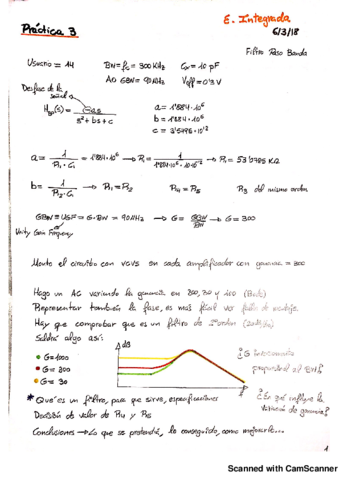 E. Integrada
Práctica 3
6/3/18
Filtro Paso Banda
Usuario = 14
BW = fc = 300 KHz
Cx = 10 pF
AO GBW = 90 MHz
Voff = 0'3 V
Desfase de la señal
H(s) = -as / s² + bs + c
a = 1'884·10⁶
b = 1'884·10⁶
c = 3'5495·10¹²
a = 1 / R₁·C₁ = 1'884·10⁶ → R₁ = 1 / 1'884·10⁶·10·10⁻¹² → R₁ = 53'0785 KΩ
b = 1 / R₂·C₁ → R₁ = R₂ R₄ = R₅ R₃ del mismo orden
GBW = UGF = G·BW = 90 MHz → G = GBW / BW → G = 300
Unity Gain Frequency
Monto el circuito con VCVS en cada amplificador con ganancia = 300
Hago un AC variando la ganancia en 300, 30 y 100
Representar también la fase, es más fácil ver
Hay que comprobar que es un filtro de 2º orden
Saldrá algo así:
dB
G=1000
G= 300
G= 30
f
¿G inversamente proporcional al BW?
¿En qué influye la variación de ganancia?
* Qué es un filtro, para qué sirve, especificaciones
Decisión de valor de R4 y R5
Conclusiones → Lo que se pretendía, lo conseguido, como mejorarlo...
1
Scanned with CamScanner